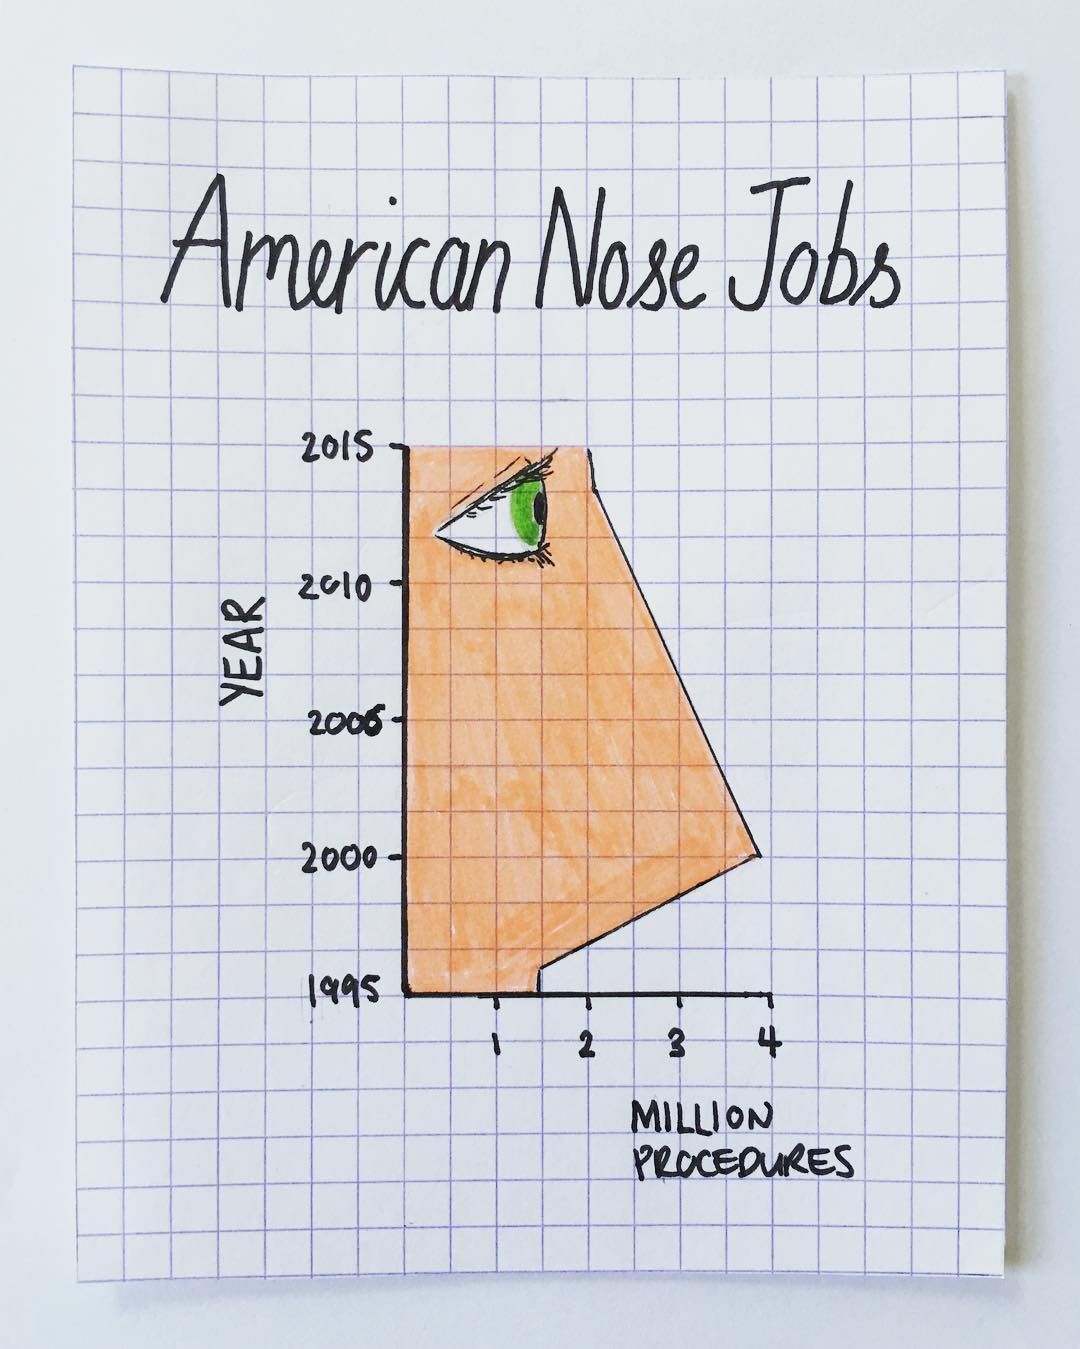 American Nose Jobs
2015
2010
2005
2000
1995
YEAR
1 2 3 4
MILLION
PROCEDURES